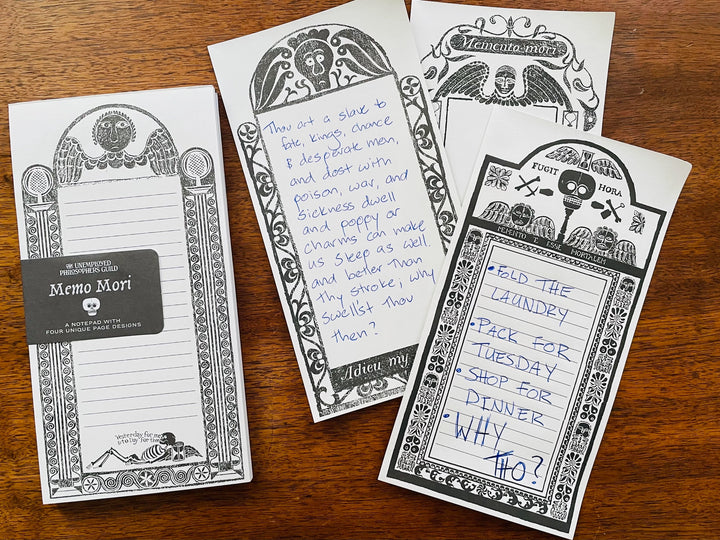 THE UNEMPLOYED
PHILOSOPHERS GUILD
Memo Mori
A NOTEPAD WITH
FOUR UNIQUE PAGE DESIGNS
Yesterday for me
Thou art a slave to
fate, kings, chance
& desperate men,
and dost with
poison, war, and
sickness dwell
and poppy or
charms can make
us sleep as well
and better than
thy stroke; why
swell'st thou
then?
Adieu my
Memento mori
FUGIT HORA
MEMENTO E ESSE MORTALEM
• FOLD THE
LAUNDRY
• PACK FOR
TUESDAY
• SHOP FOR
DINNER
• WHY
THO?